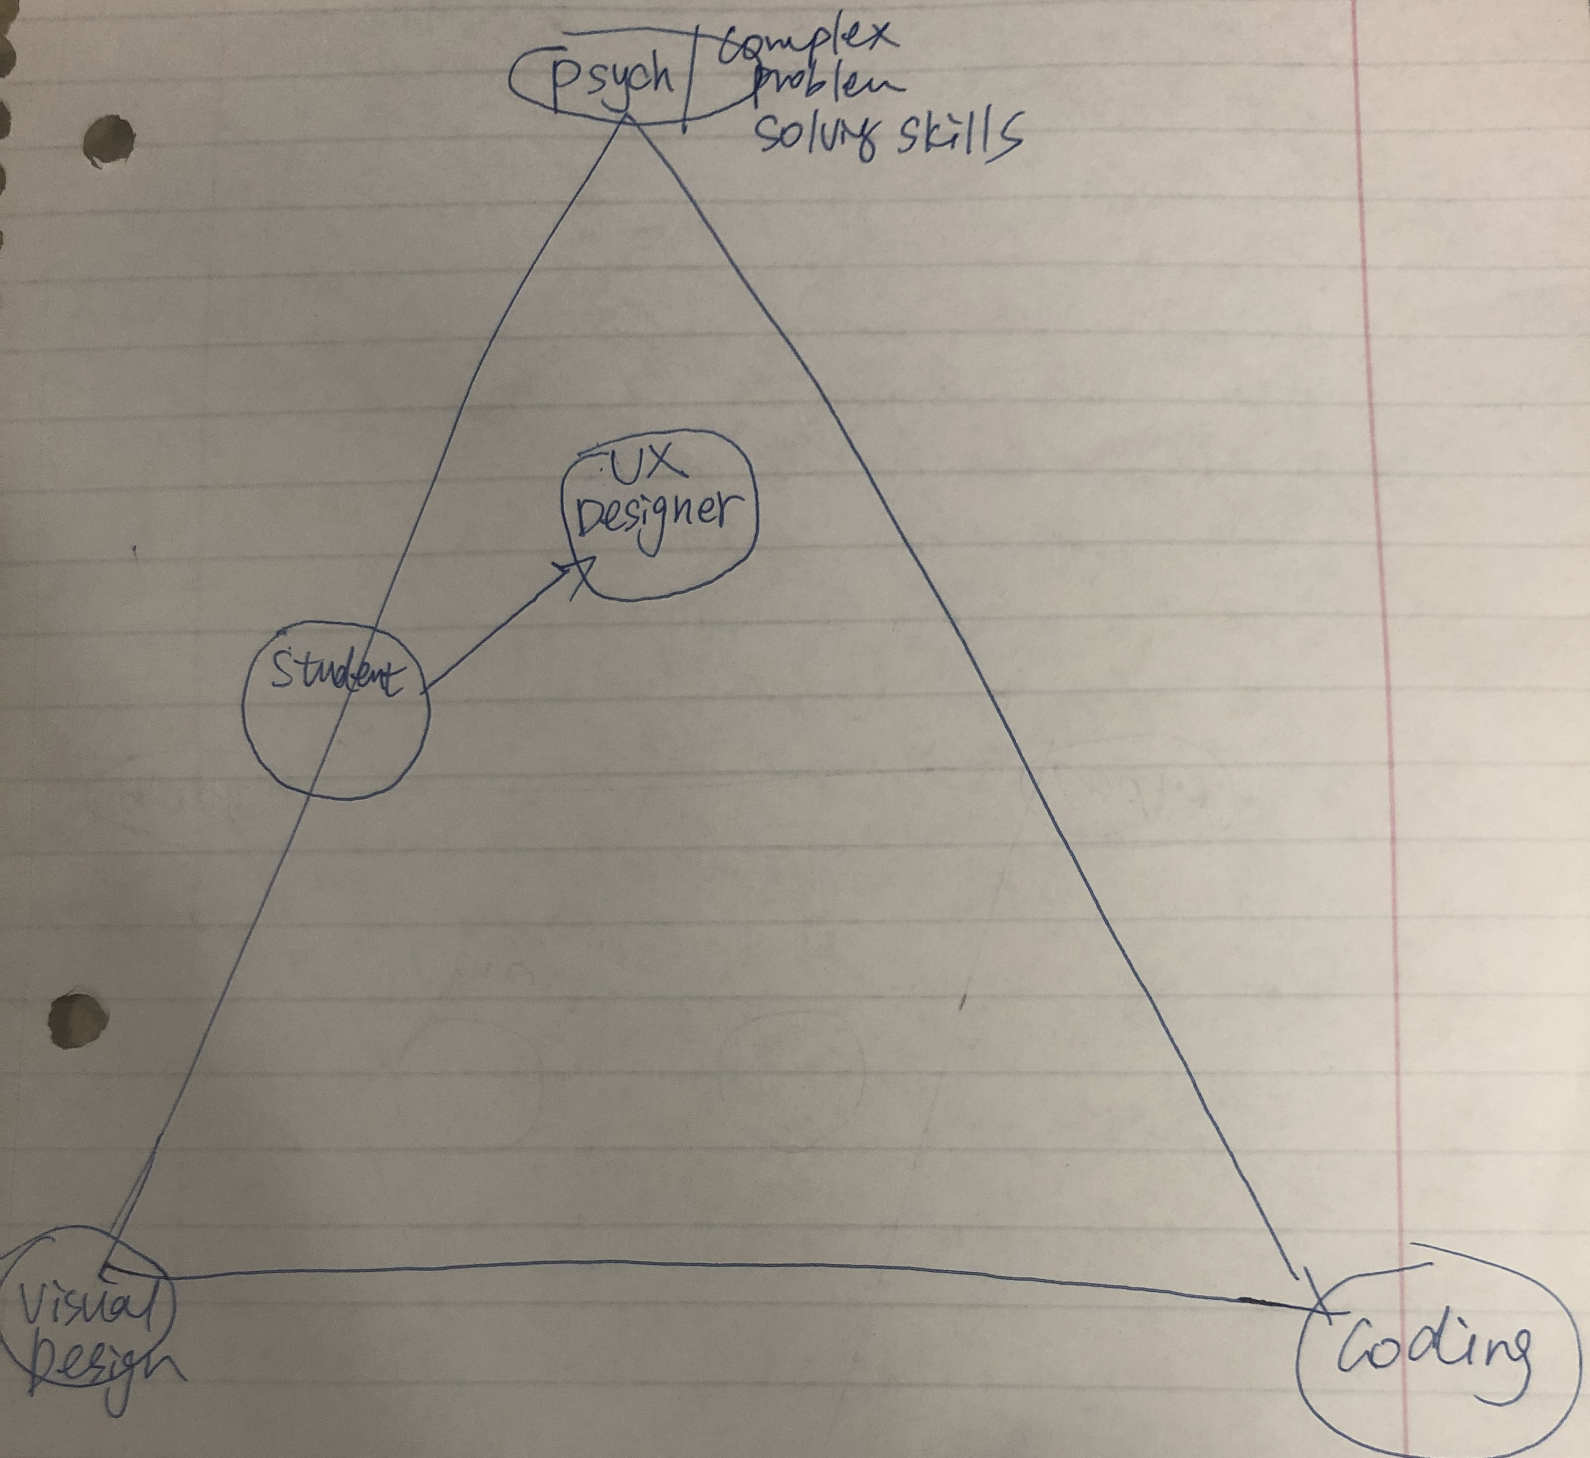 psych
complex
problem
solving skills
UX
Designer
Student
Visual
Design
Coding